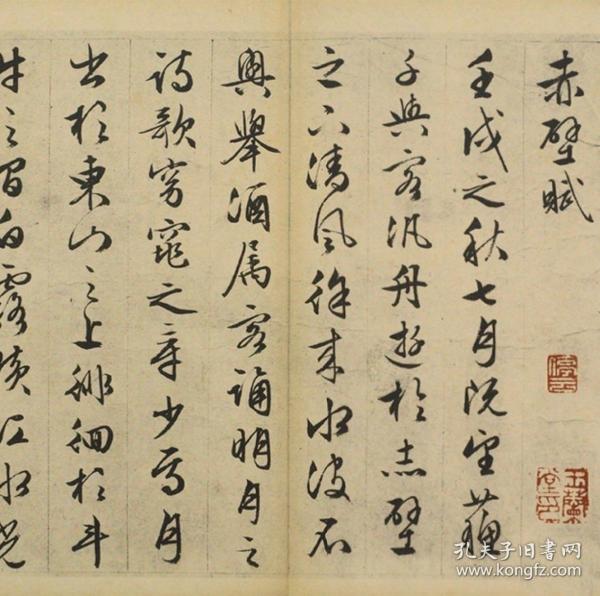 赤壁賦
壬戌之秋七月既望蘇
子與客汎舟遊於赤壁
之下清風徐來水波不
興舉酒属客誦明月之
詩歌窈窕之章少焉月
出於東山之上徘徊於斗
牛之間白露橫江水光
玉蘭堂
孔夫子旧书网
www.kongfz.com